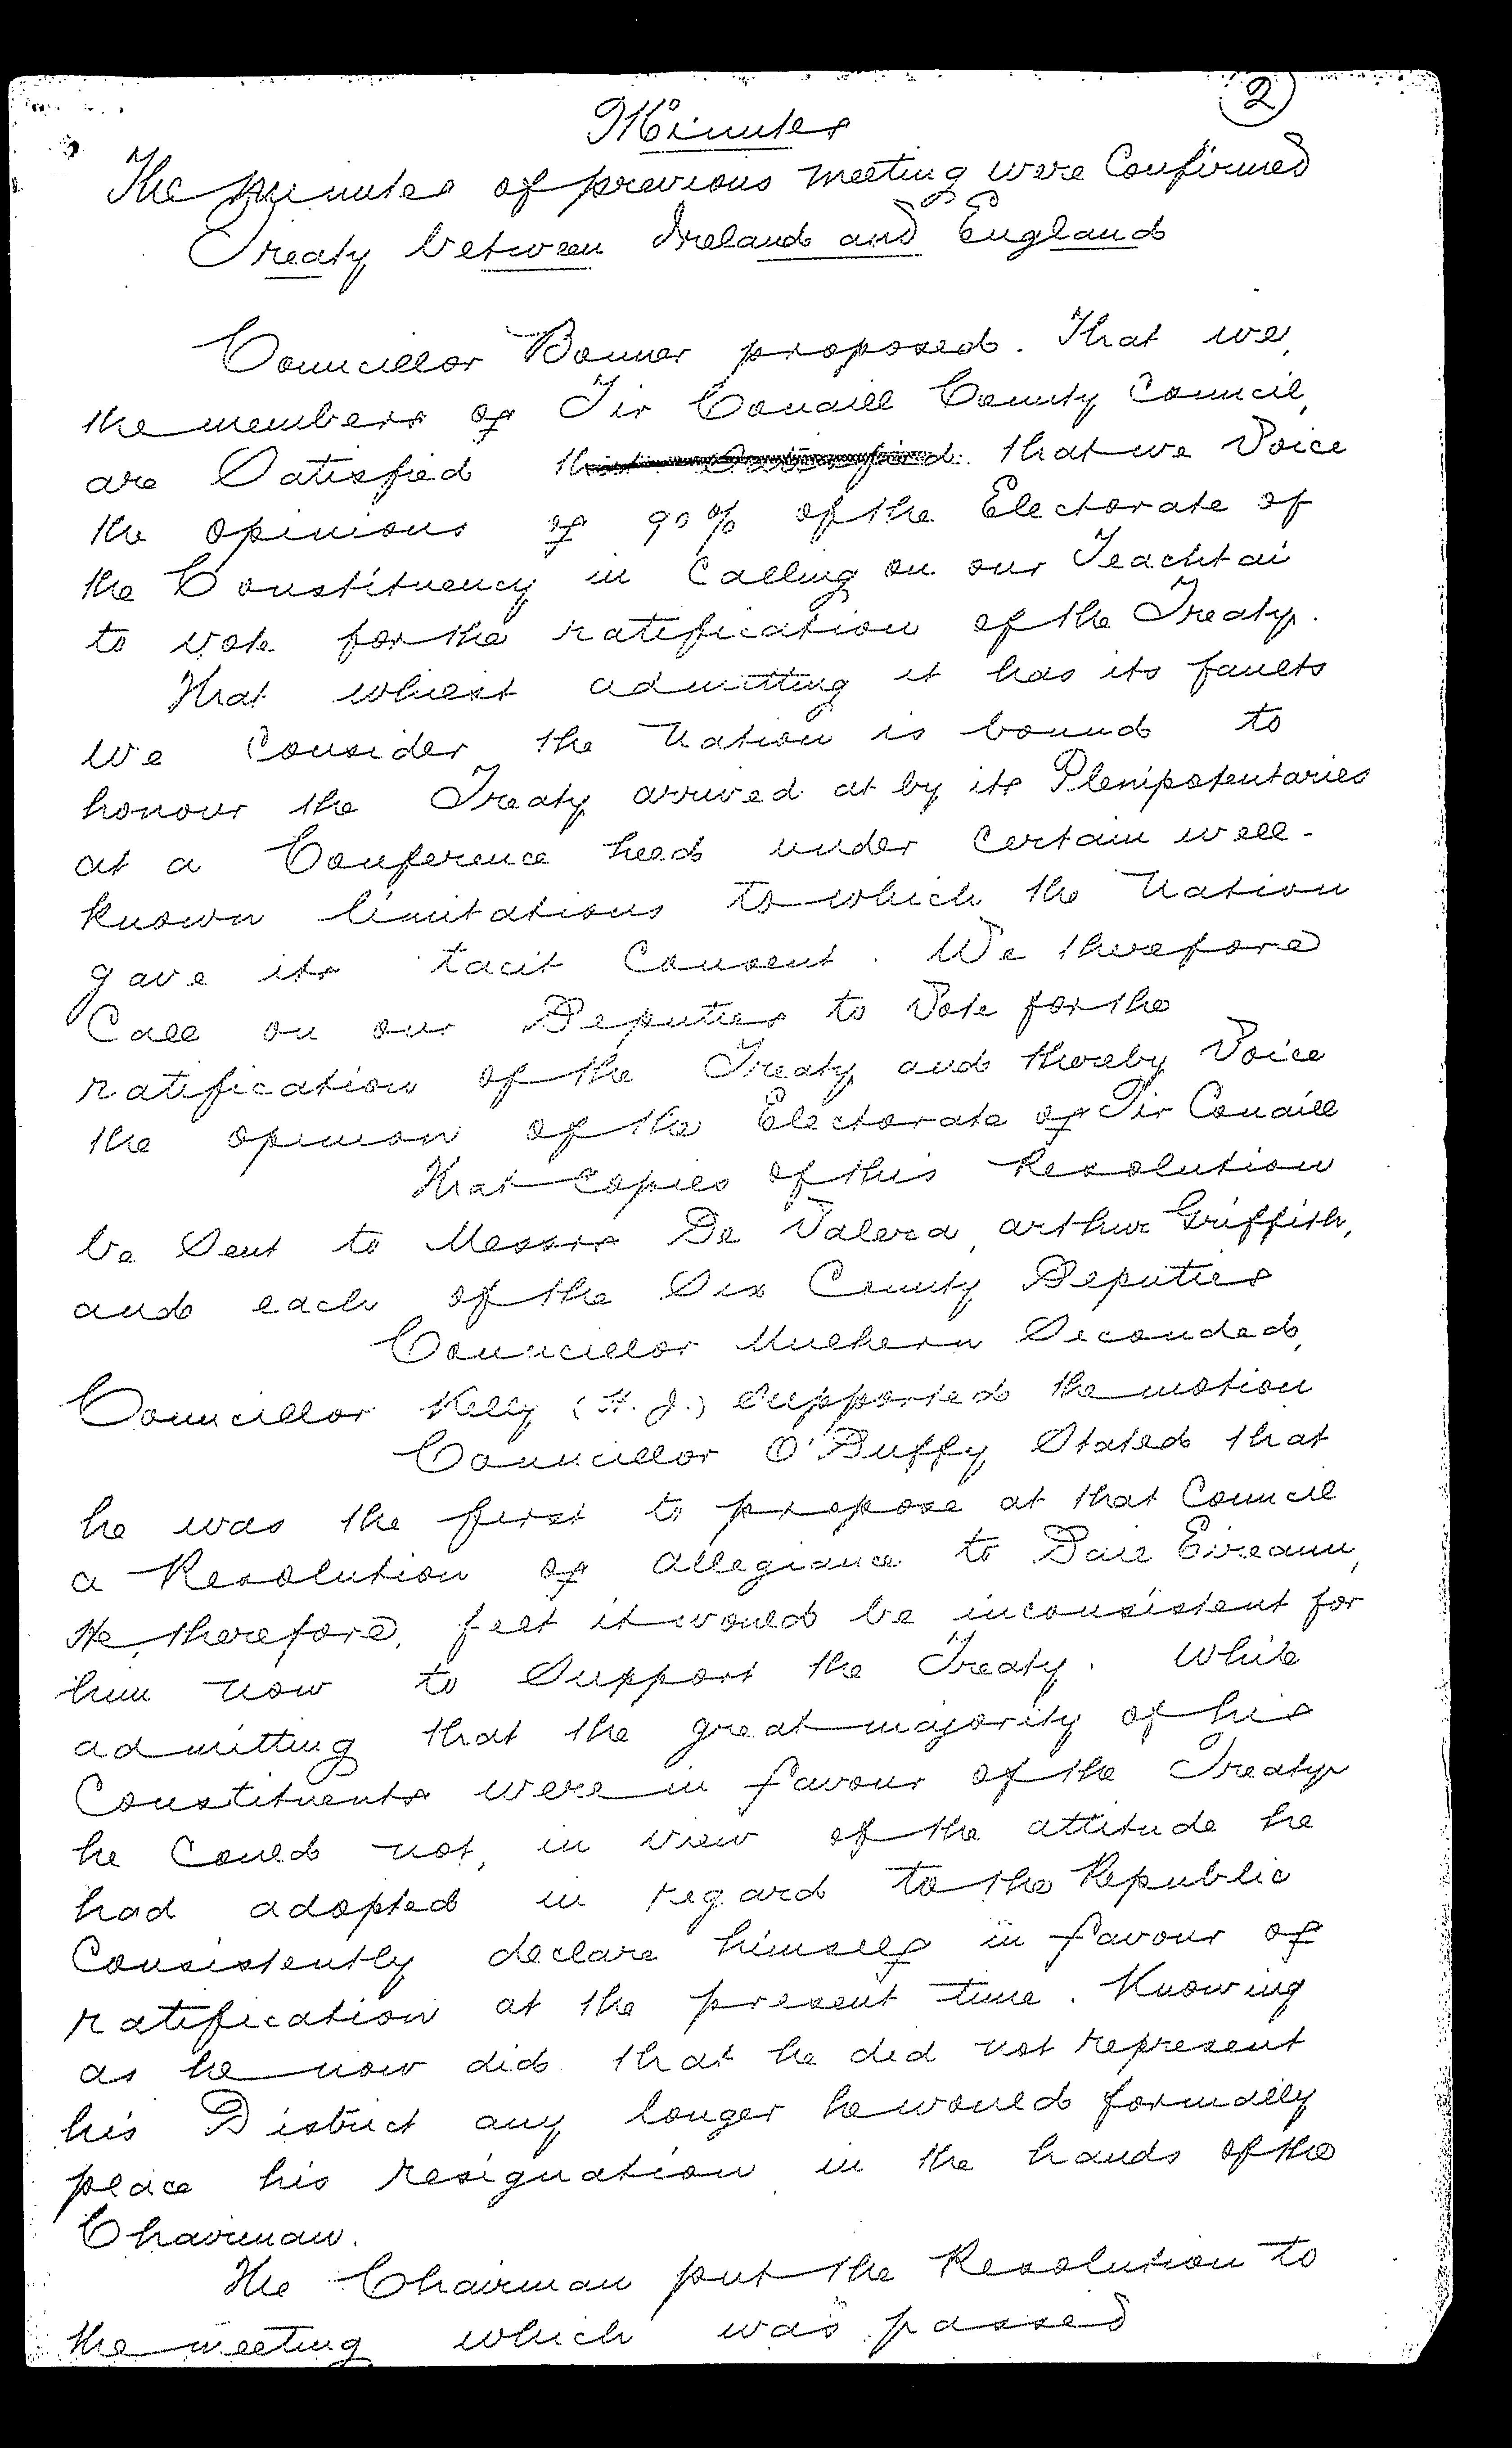 2
Minutes
The minutes of previous meeting were Confirmed
Treaty between Ireland and England
Councillor Bonner proposed. That we,
the members of Tir Conaill County Council,
are Satisfied that we Voice
the opinions of 90% of the Electorate of
the Constituency in Calling on our Teachtai
to vote for the ratification of the Treaty.
That whilst admitting it has its faults
we Consider the Nation is bound to
honour the Treaty arrived at by its Plenipotentaries
at a Conference held under Certain well-
known limitations to which the Nation
gave its tacit Consent. We therefore
Call on our Deputies to Vote for the
ratification of the Treaty and thereby Voice
the opinion of the Electorate of Tir Conaill
That Copies of this Resolution
be Sent to Messrs De Valera, Arthur Griffith,
and each of the Six County Deputies
Councillor Mulhern Seconded,
Councillor Kelly (H. J.) Supported the motion
Councillor O'Duffy Stated that
he was the first to propose at that Council
a Resolution of Allegiance to Dail Eireann,
He, therefore, felt it would be inconsistent for
him now to Support the Treaty. While
admitting that the great majority of his
Constituents were in favour of the Treaty
he Could not, in view of the attitude he
had adopted in regard to the Republic
Consistently declare himself in favour of
ratification at the present time. Knowing
as he now did that he did not represent
his District any longer he would formally
place his resignation in the hands of the
Chairman.
The Chairman put the Resolution to
the meeting which was passed